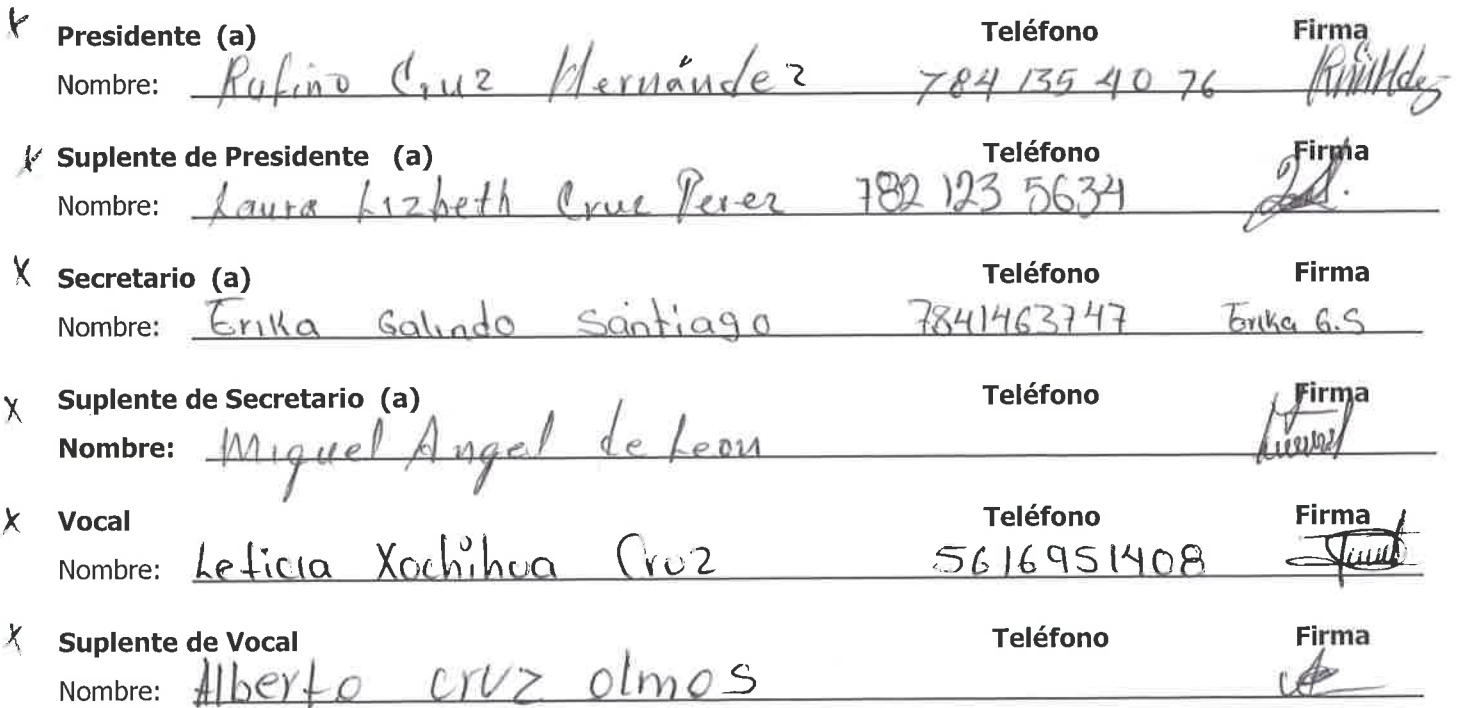 X Presidente (a) Teléfono Firma
Nombre: Rufino Cruz Hernández 784 135 40 76
X Suplente de Presidente (a) Teléfono Firma
Nombre: Laura Lizbeth Cruz Perez 782 123 5634
X Secretario (a) Teléfono Firma
Nombre: Erika Galindo Santiago 7841463747 Erika G.S
X Suplente de Secretario (a) Teléfono Firma
Nombre: Miguel Angel de Leon
X Vocal Teléfono Firma
Nombre: Leticia Xochihua Cruz 5616951408
X Suplente de Vocal Teléfono Firma
Nombre: Alberto cruz olmos